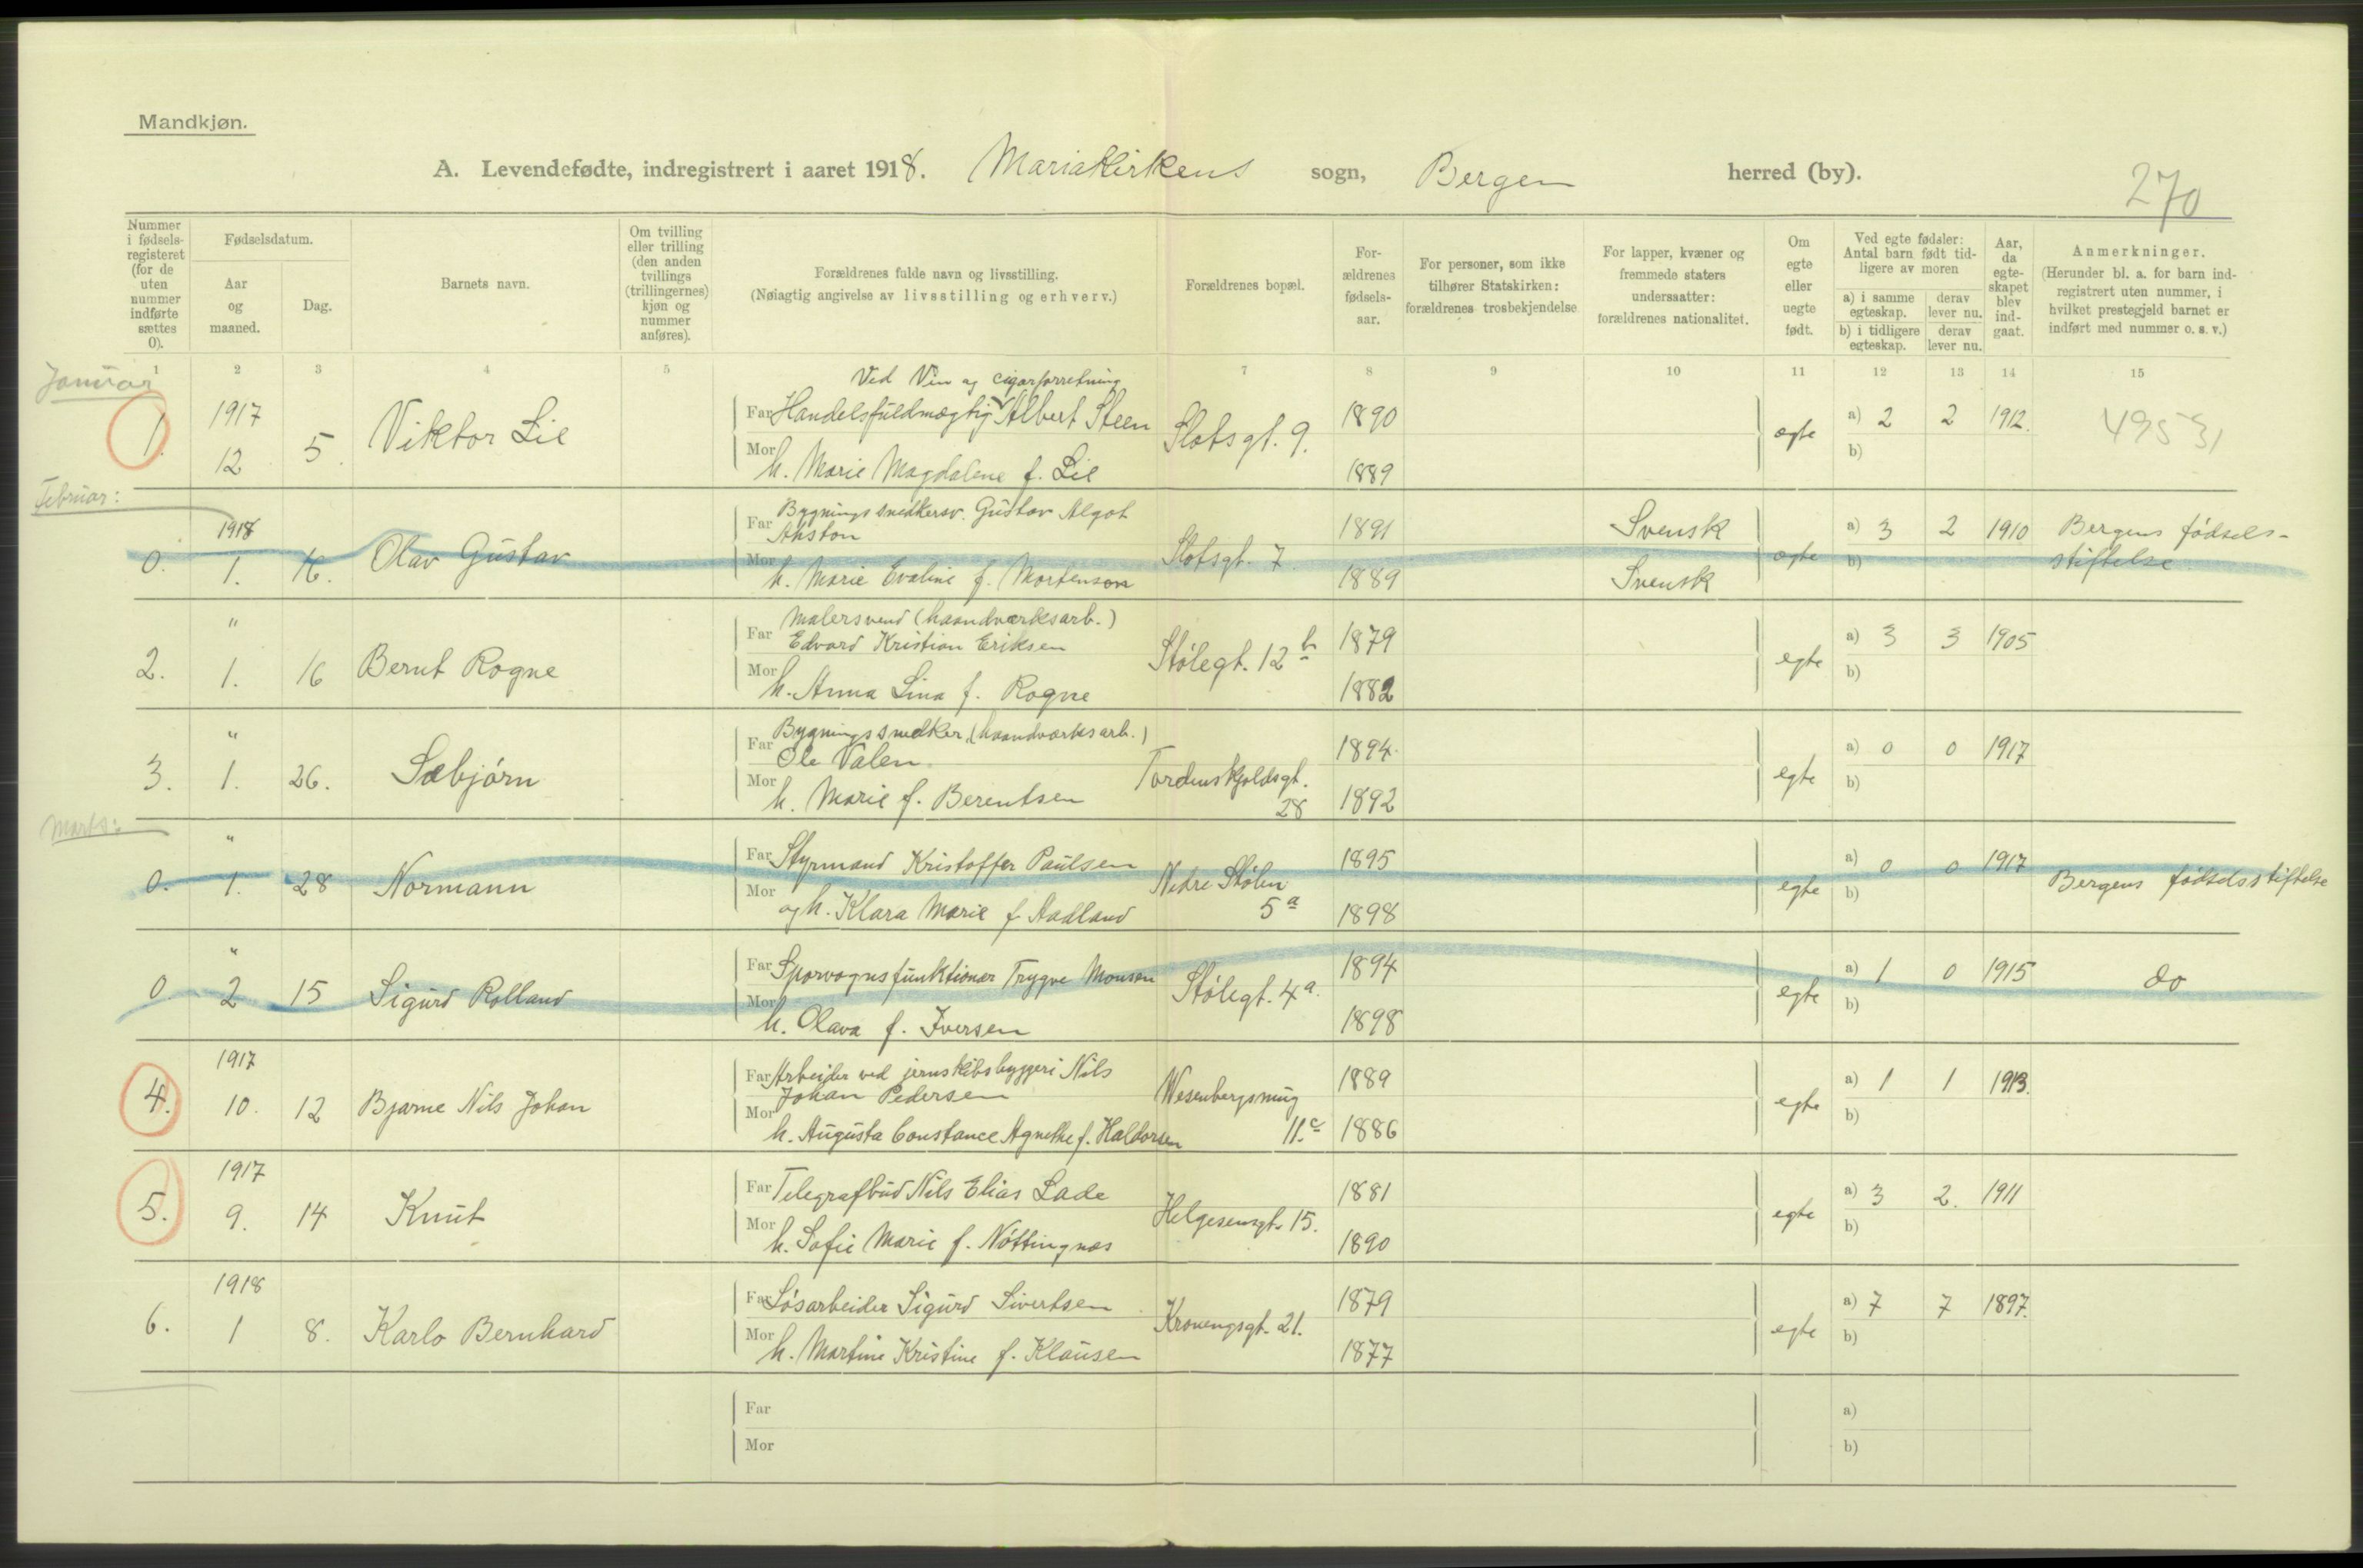 Mandkjøn.
A. Levendefødte, indregistrert i aaret 1918. Mariakirkens sogn, Bergen herred (by).
270
Nummer i fødsels-registeret (for de uten nummer indførte sættes 0).
Fødselsdatum.
Aar og maaned.
Dag.
Barnets navn.
Om tvilling eller trilling (den anden tvillings (trillingernes) kjøn og nummer anføres).
Forældrenes fulde navn og livsstilling.
(Nøiagtig angivelse av livsstilling og erhverv.)
Forældrenes bopæl.
For-ældrenes fødsels-aar.
For personer, som ikke tilhører Statskirken: forældrenes trosbekjendelse
For lapper, kvæner og fremmede staters undersaatter: forældrenes nationalitet.
Om egte eller uegte født.
Ved egte fødsler: Antal barn født tid-ligere av moren
a) i samme egteskap.
derav lever nu.
b) i tidligere egteskap.
derav lever nu.
Aar, da egte-skapet blev ind-gaat.
Anmerkninger.
(Herunder bl. a. for barn ind-registrert uten nummer, i hvilket prestegjeld barnet er indført med nummer o. s. v.)
1 2 3 4 5 7 8 9 10 11 12 13 14 15
Januar
Ved Vin og cigarforretning
1. 1917 12 5. Viktor Lie Far Handelsfuldmægtig Albert Steen Slotsgt. 9. 1890 egte a) 2 2 1912. 49531
Mor h. Marie Magdalene f. Lie 1889 b)
Februar:
0. 1918 1. 16. Olav Gustav Far Bygningssnedkersv. Gustav Algot
Slotsgt. 7. 1891 Svensk egte a) 3 2 1910 Bergens fødsels-
stiftelse.
Mor h. Marie Evaline f. Mortenson 1889 Svensk b)
2. " 1. 16 Bernt Rogne Far Malersvend (haandværksarb.)
Edvard Kristian Eriksen Stølegt. 12 b 1879 egte a) 3 3 1905
Mor h. Anna Lina f. Rogne 1882 b)
3. " 1. 26. Sæbjørn Far Bygningssnedker (haandværksarb.)
Ole Valen Tordenskjoldsgt. 28 1894 egte a) 0 0 1917
Mor h. Marie f. Berentsen 1892 b)
Marts:
0. " 1. 28 Normann Far Styrmand Kristoffer Paulsen Nedre Stølen 5 a 1895 egte a) 0 0 1917 Bergens fødselsstiftelse
Mor og h. Klara Marie f. Aadland 1898 b)
0 " 2 15 Sigurd Rolland Far Sporvognsfunktionær Trygve Monsen Stølegt. 4 a. 1894 egte a) 1 0 1915 do
Mor h. Olava f. Iversen 1898 b)
4. 1917 10. 12 Bjarne Nils Johan Far Arbeider ved jernskibsbyggeri Nils
Johan Pedersen Wesenbergsmug 11. c 1889 egte a) 1 1 1913.
Mor h. Augusta Constance Agnethe f. Haldorsen 1886 b)
5. 1917 9. 14 Knut Far Telegrafbud Nils Elias Lade Helgesensgt. 15. 1881 egte a) 3 2. 1911
Mor h. Sofie Marie f. Nøttingnes 1890 b)
6. 1918 1 8. Karlo Bernhard Far Løsarbeider Sigurd Sivertsen Kronengsgt. 21. 1879 egte a) 7 7 1897.
Mor h. Martine Kristine f. Klausen 1877 b)
Far a)
Mor b)